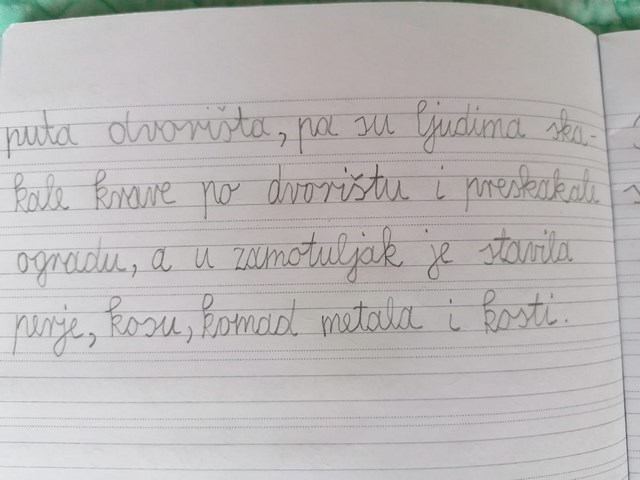 puta dvorišta, pa su ljudima ska-
kale krave po dvorištu i preskakale
ogradu, a u zamotuljak je stavila
perje, kosu, komad metala i kosti.